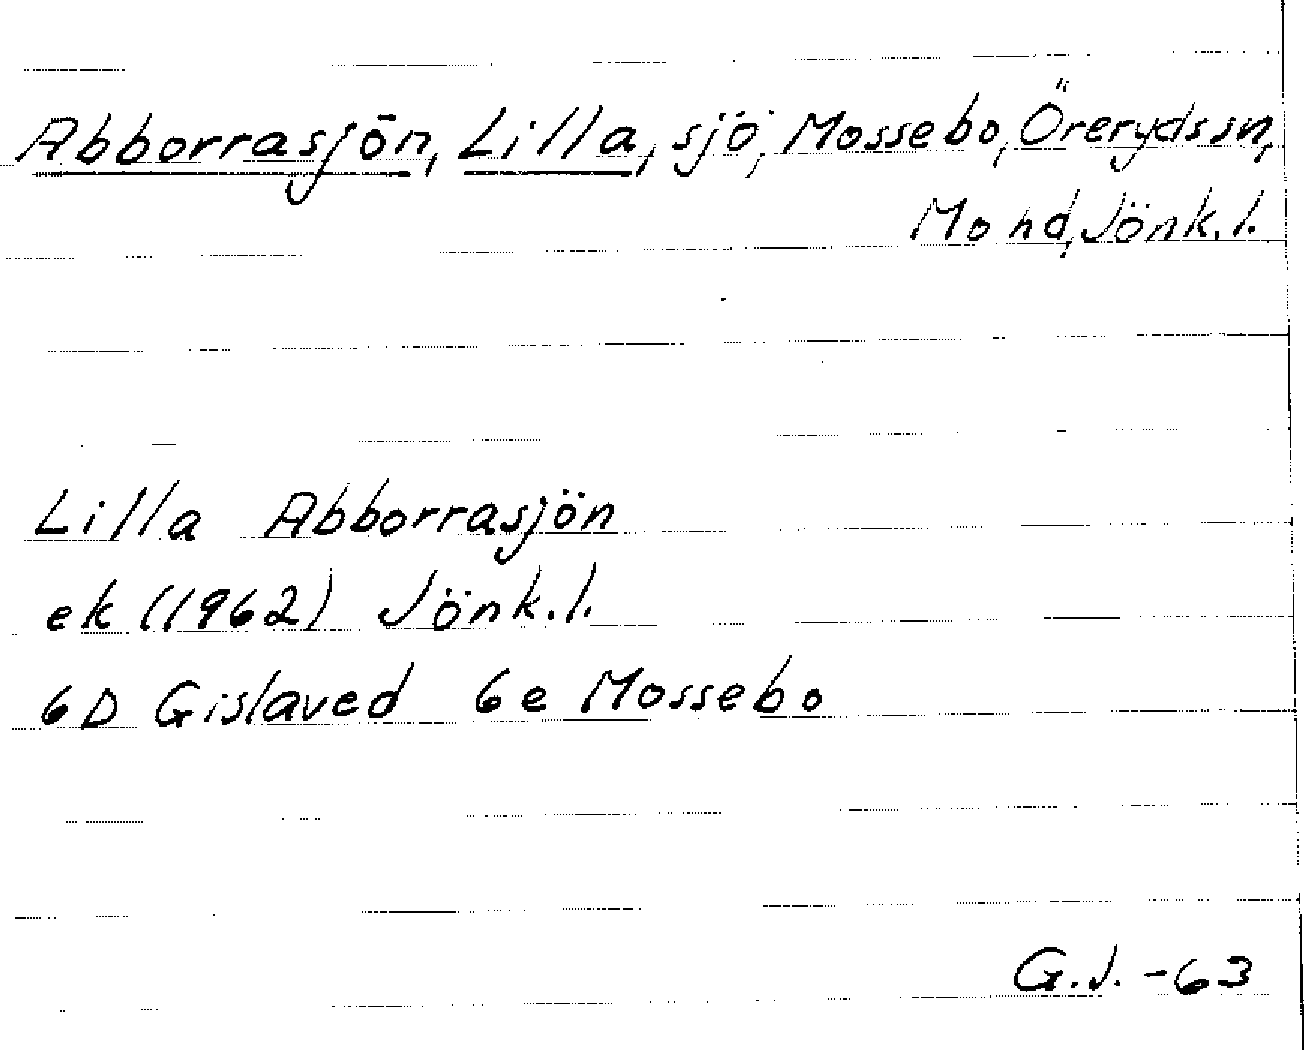 Abborrasjön, Lilla, sjö, Mossebo, Öreryds sn,
Mo hd, Jönk. l.
Lilla Abborrasjön
ek (1962) Jönk. l.
6D Gislaved 6e Mossebo
G.J. -63